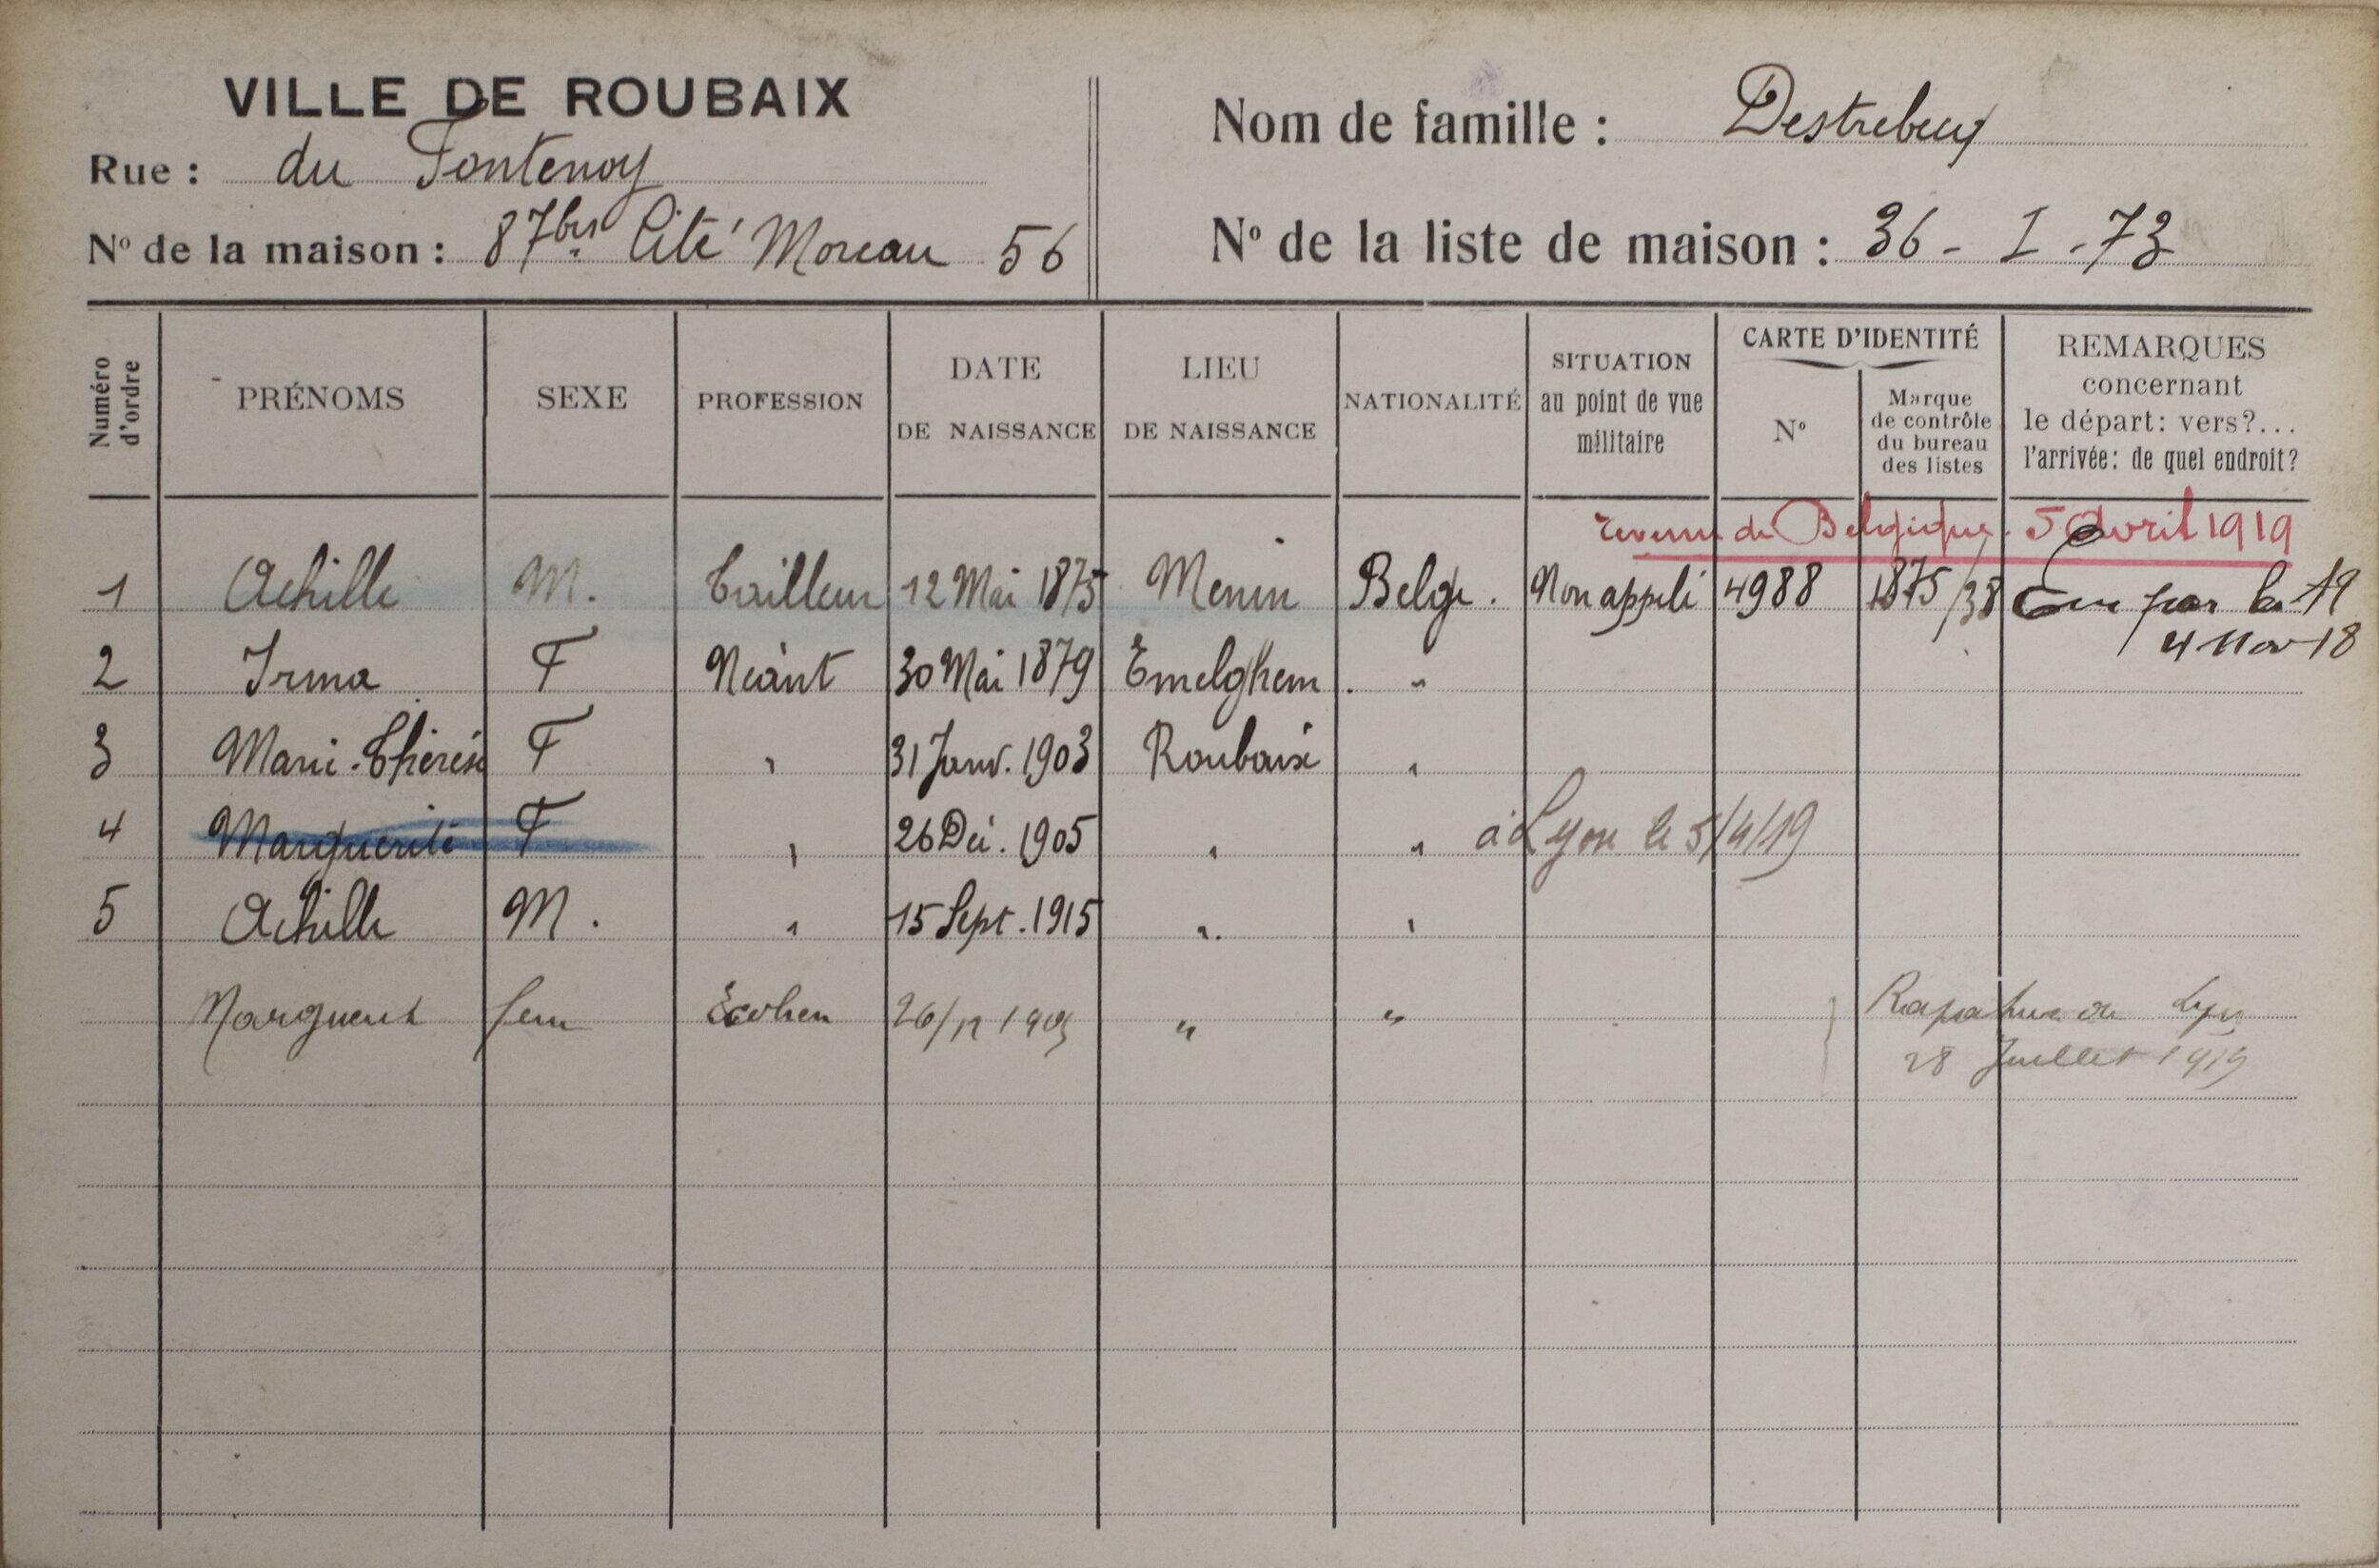 VILLE DE ROUBAIX
Rue : du Fontenoy
N° de la maison : 87bis Cité Moreau 56
Nom de famille : Destrebecq
N° de la liste de maison : 36 - I - 73
Numéro d'ordre
PRÉNOMS
SEXE
PROFESSION
DATE DE NAISSANCE
LIEU DE NAISSANCE
NATIONALITÉ
SITUATION au point de vue militaire
CARTE D'IDENTITÉ
N°
Marque de contrôle du bureau des listes
REMARQUES concernant le départ: vers?... l'arrivée: de quel endroit?
revenu de Belgique. 5 Avril 1919
1 Achille M. Tailleur 12 Mai 1875 Menin Belge. Non appelé 4988 1875/38 par les
4 Nov 18
2 Irma F Néant 30 Mai 1879 Emelghem "
3 Marie-Thérèse F " 31 Janv. 1903 Roubaix "
4 Marguerite F " 26 Déc. 1905 " " à Lyon le 5/4/19
5 Achille M. " 15 Sept. 1915 " "
Marguerite fem 26/12 1905 " "
28 Juillet 1919